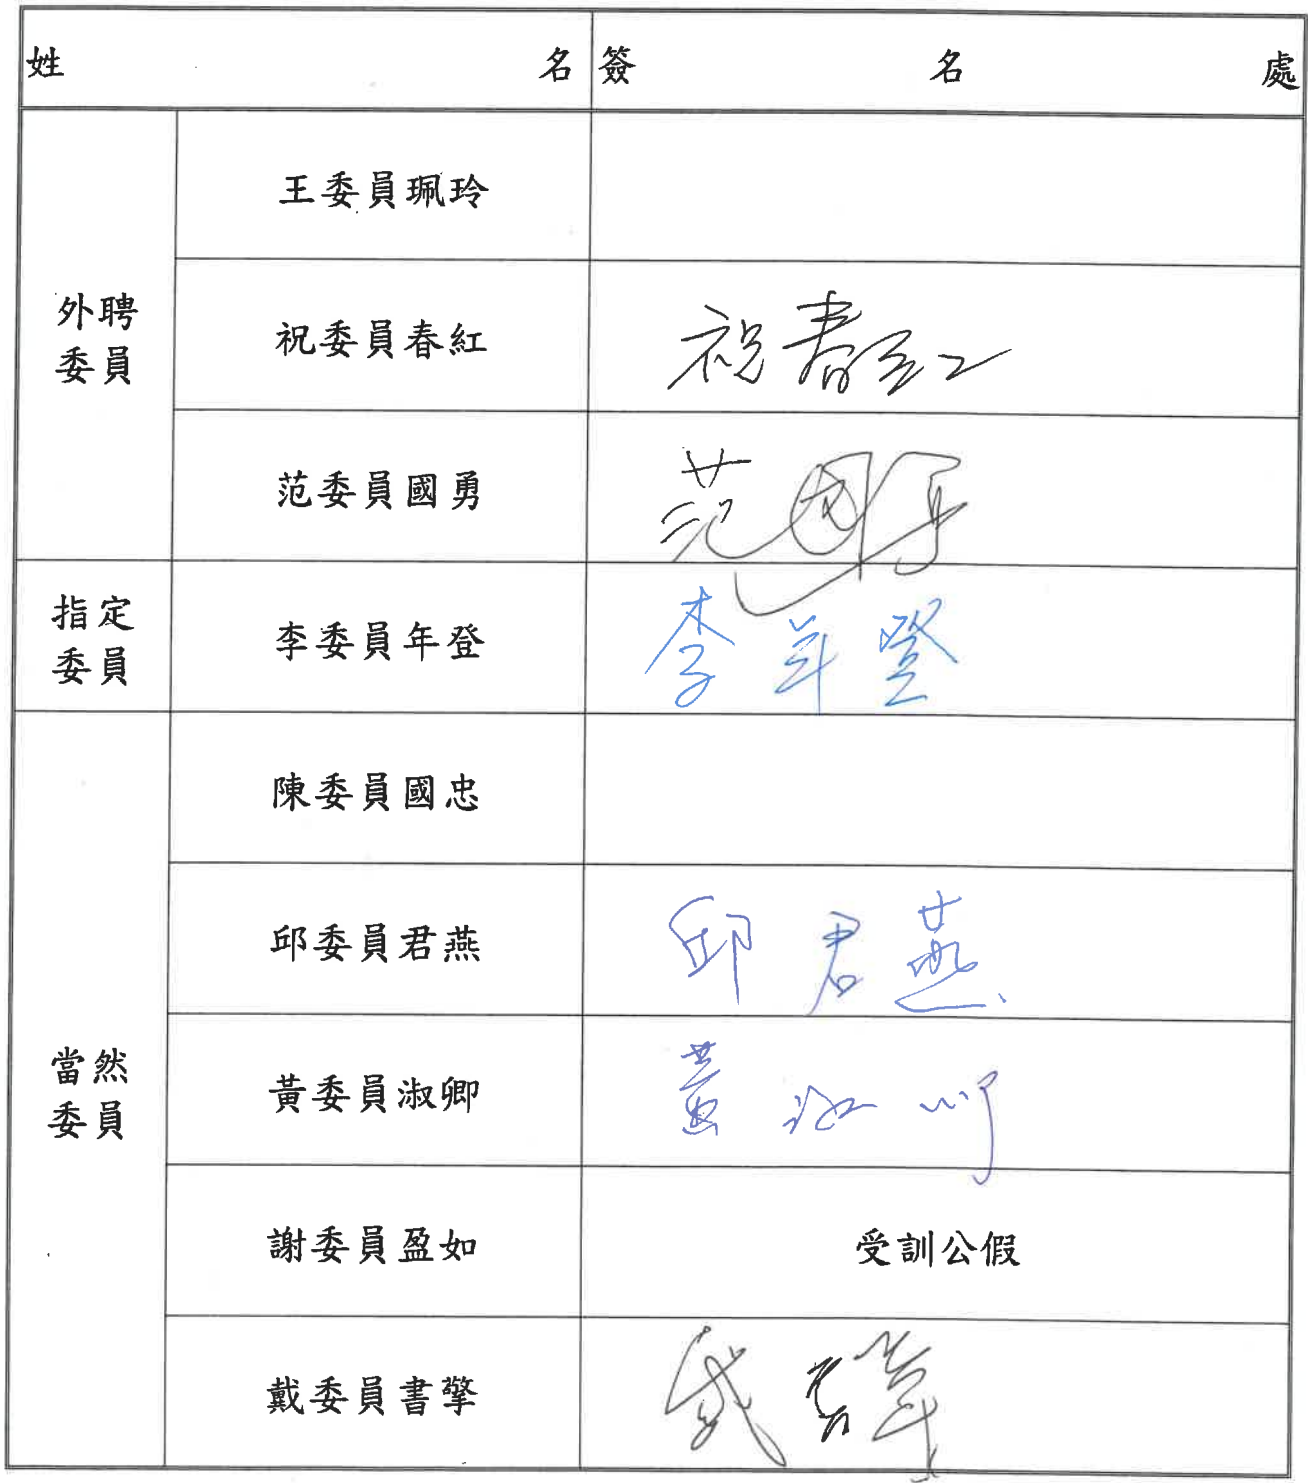 姓名 簽名處
外聘
委員
王委員珮玲
祝委員春紅 祝春紅
范委員國勇 范國勇
指定
委員
李委員年登 李年登
當然
委員
陳委員國忠
邱委員君燕 邱君燕
黃委員淑卿 黃淑卿
謝委員盈如 受訓公假
戴委員書擎 戴書擎